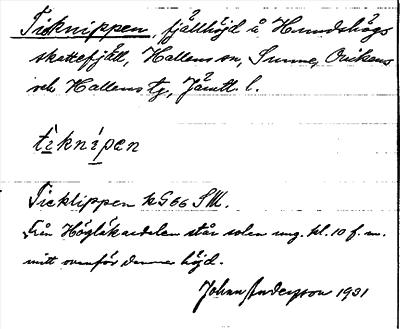 Ticknippen, fjällhöjd å Hundshögs
skattefjäll, Hallens sn, Sunne, Ovikens
och Hallens tg, Jämtl. l.
tiknipen
Ticklippen KG66 SM.
Från Höglekardalen står solen ung. kl. 10 f. m.
mitt ovanför denna höjd.
Johan Andersson 1931